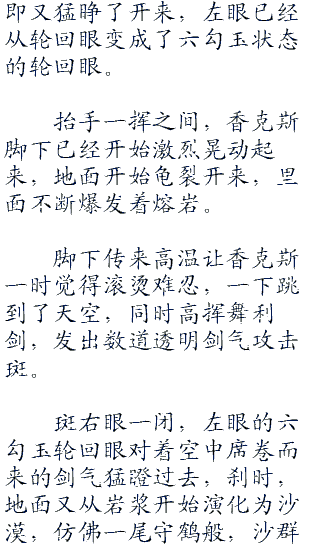 即又猛睁了开来，左眼已经
从轮回眼变成了六勾玉状态
的轮回眼。
抬手一挥之间，香克斯
脚下已经开始激烈晃动起
来，地面开始龟裂开来，里
面不断爆发着熔岩。
脚下传来高温让香克斯
一时觉得滚烫难忍，一下跳
到了天空，同时高挥舞利
剑，发出数道透明剑气攻击
斑。
斑右眼一闭，左眼的六
勾玉轮回眼对着空中席卷而
来的剑气猛蹬过去，刹时，
地面又从岩浆开始演化为沙
漠，仿佛一尾守鹤般，沙群